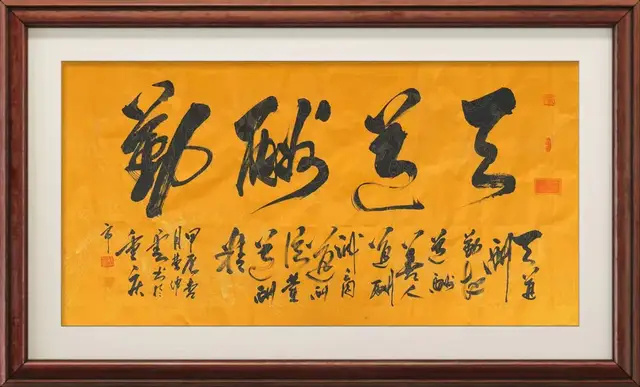 天道酬勤
天道
酬
勤地
道酬
善人
道酬
诚商
道酬
信业
道酬
精
甲辰春
月
云书于
重庆
市